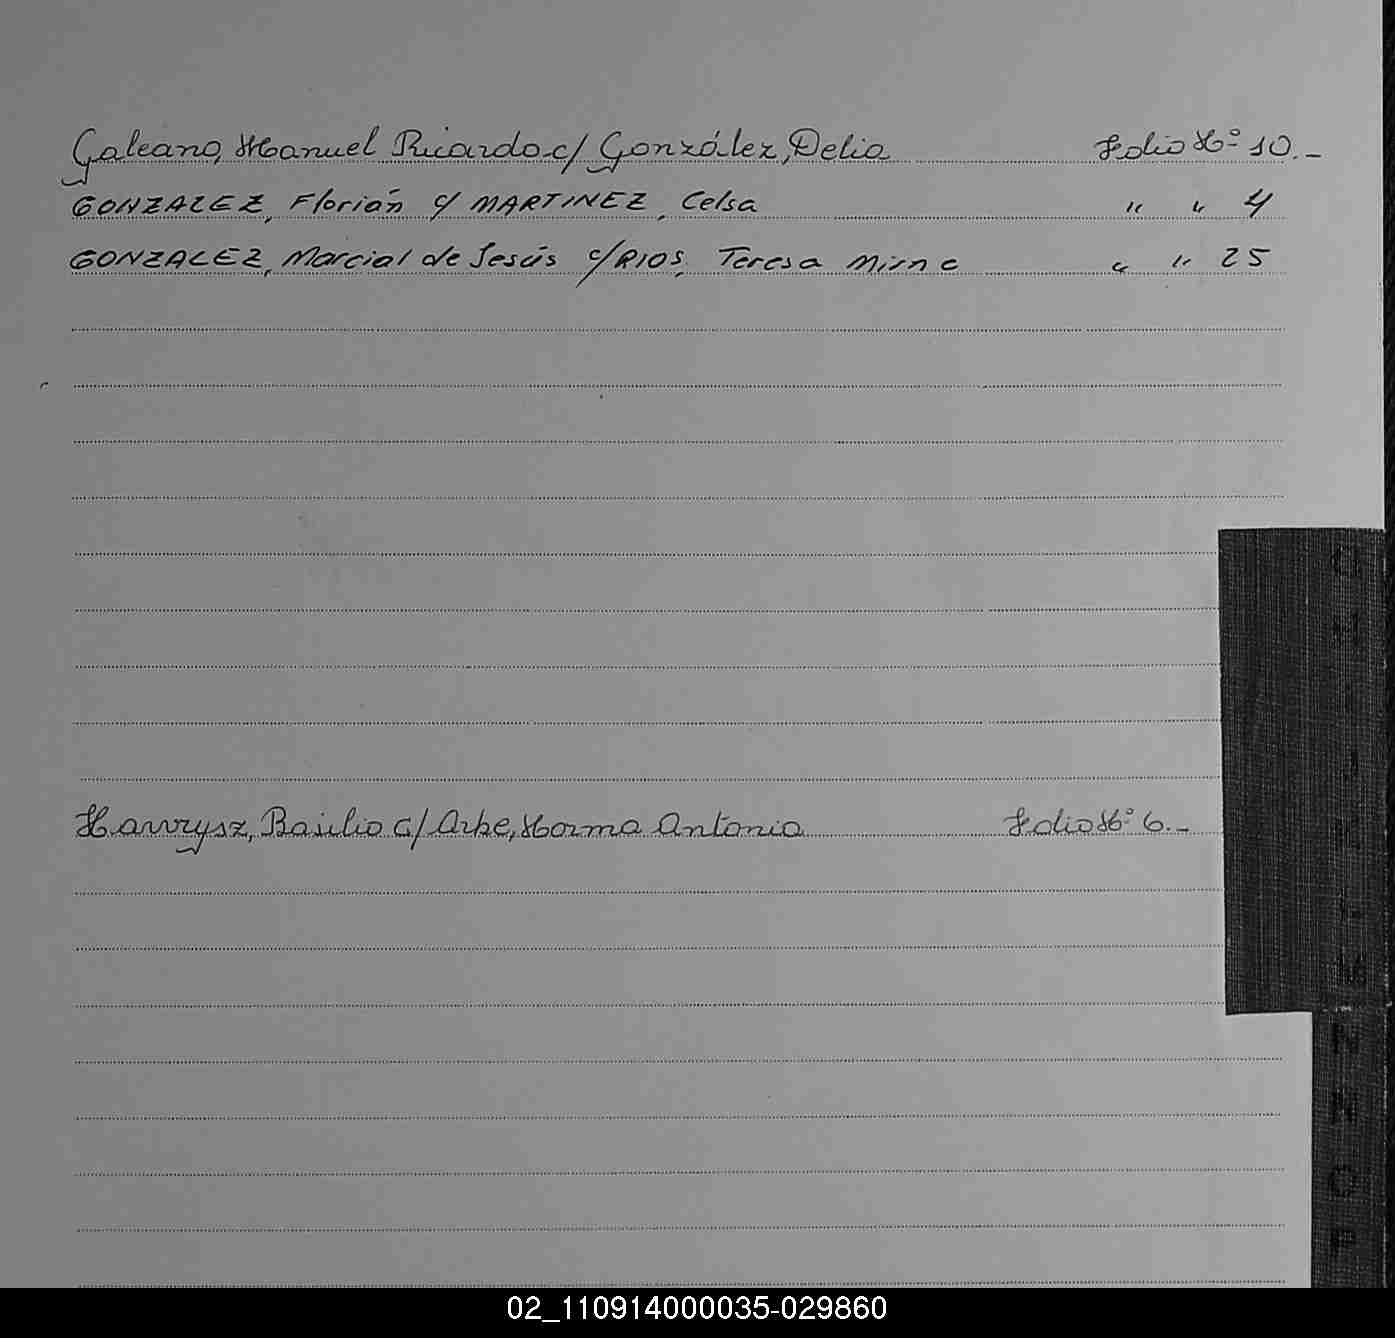 Galeano, Manuel Ricardo c/ González, Delia Folio Nº 10.-
GONZALEZ, Florián c/ MARTINEZ, Celsa " " 4
GONZALEZ, Marcial de Jesús c/ RIOS, Teresa Mirne " " 25
Hawrysz, Basilio c/ Arbe, Norma Antonia Folio Nº 6.-
02_110914000035-029860